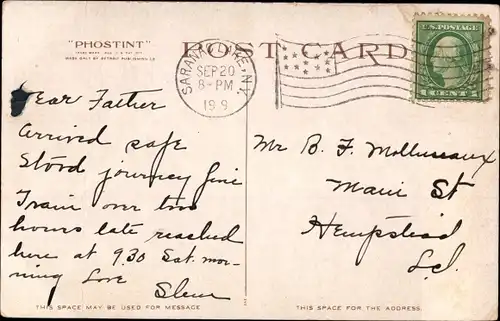 "PHOSTINT"
MADE ONLY BY DETROIT PUBLISHING CO.
POST CARD
SARANAC LAKE, N.Y.
SEP 20
8-PM
U.S. POSTAGE
1 CENT 1
Dear Father
Arrived safe
Stood journey fine
Train over two
hours late reached
here at 9.30 Sat. mor-
ning Love
Mr B. F.
Main St
Hempstead
L.I.
THIS SPACE MAY BE USED FOR MESSAGE
THIS SPACE IS FOR THE ADDRESS.